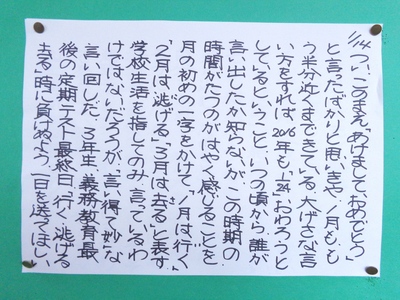 1/14
つい、このまえ「あけましておめでとう」
と言ったばかりと思いきや、1月も、も
う半分近くまできている。大げさな言
い方をすれば、2016年も「1/24」おわろうと
しているということ。いつの頃から、誰が
言い出したか知らないが、この時期の
時間がたつのがはやく感じることを
月の初めの一字をかけて、「1月は行く」
「2月は逃げる」「3月は去る」と表す。
学校生活を指してのみ、言っているわ
けではないだろうが、「言い得て妙」な
言い回しだ。3年生、義務教育最
後の定期テスト最終日。「行く、逃げる
去る」時に負けぬよう、一日を送ってほしい。